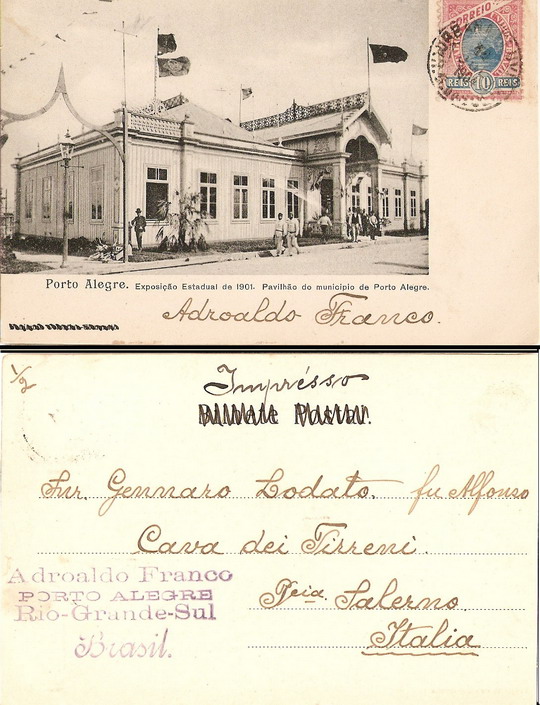 CORREIO
REIS 10 REIS
Porto Alegre. Exposição Estadual de 1901. Pavilhão do municipio de Porto Alegre.
Adroaldo Franco.
1/2
Imprésso
Bilhete Postal.
Snr. Gennaro Lodato. fu Alfonso
Cava dei Tirreni.
Adroaldo Franco
PORTO ALEGRE
Rio-Grande-Sul
Brasil.
Pcia. Salerno.
Italia